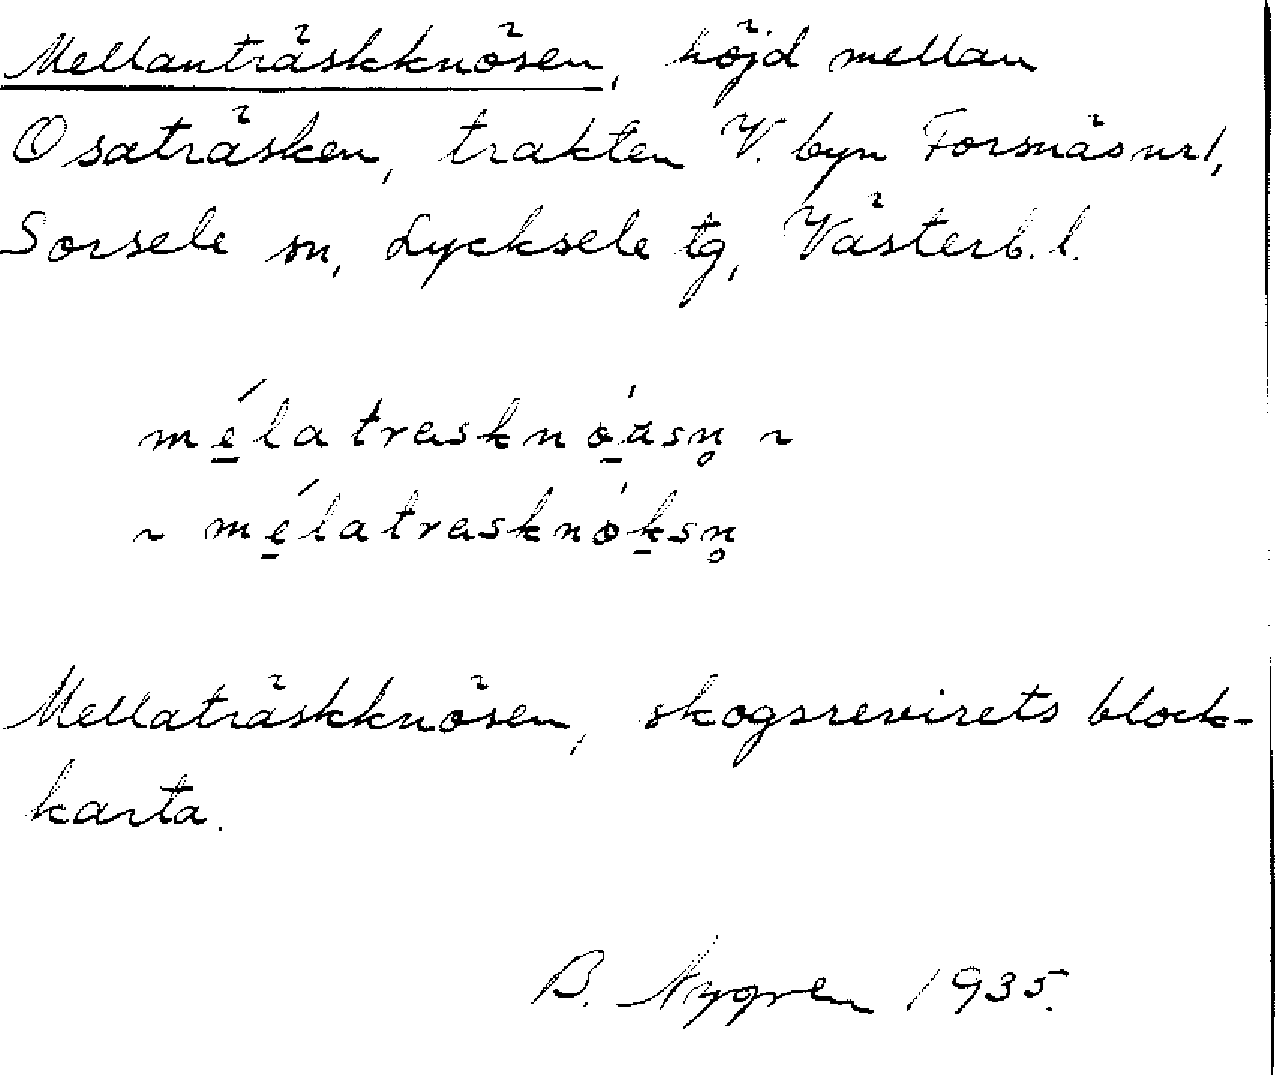 Mellanträskknösen, höjd mellan
Osaträsken, trakten V. byn Forsnäs nr 1,
Sorsele sn, Lycksele tg, Västerb. l.
mé̱latrasknó̱asn̥ ~
~ mé̱latrasknóḵsn̥
Mellaträskknösen, skogsrevirets block-
karta.
B. Nygren 1935.